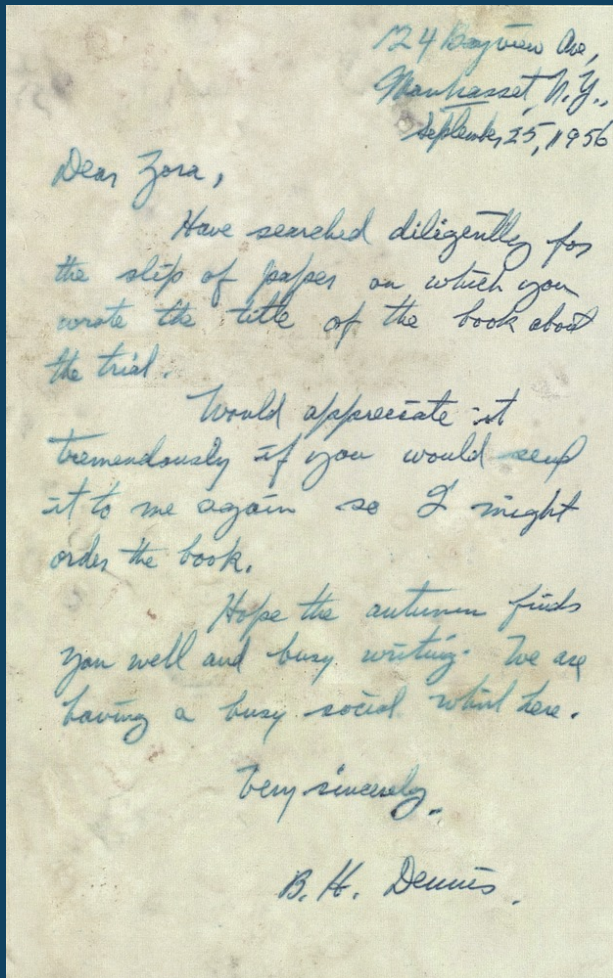 124 Bayview Ave,
Manhasset, N.Y.,
September 25, 1956
Dear Zora,
Have searched diligently for
the slip of paper on which you
wrote the title of the book about
the trial.
Would appreciate it
tremendously if you would send
it to me again so I might
order the book.
Hope the autumn finds
you well and busy writing. We are
having a busy social whirl here.
Very sincerely,
B. H. Dennis.